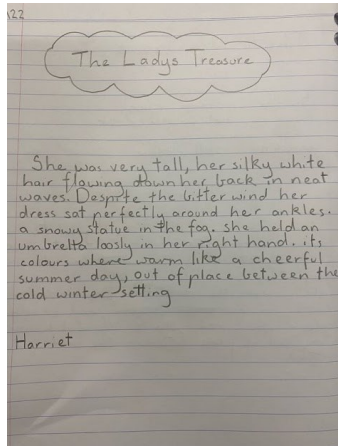 22
The Ladys Treasure
She was very tall, her silky white
hair flowing down her back in neat
waves. Desprte the bitter wind her
dress sat perfectly around her ankles.
a snowy statue in the fog. she held an
umbrella loosly in her right hand. its
colours where warm like a cheerful
summer day, out of place between the
cold winter setting
Harriet